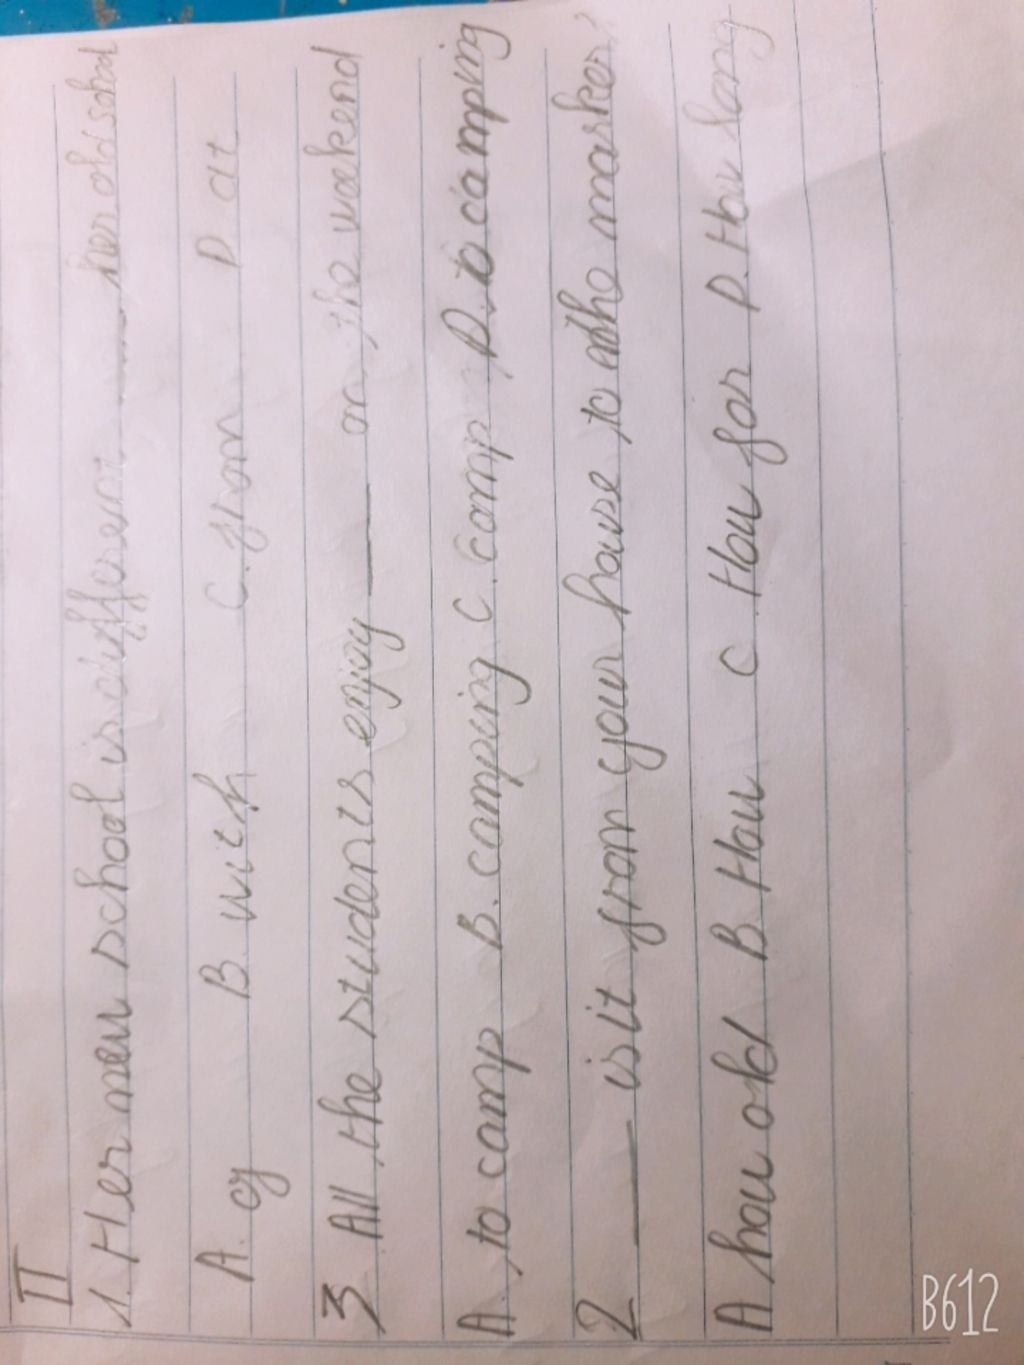 II
1. Her new school is different ___ her old school
A. of B. with C. from D at
3 All the students enjoy ___ on the weekend
A. to camp B. camping C. camp D. to camping
2 ___ is it from your house to the market?
A how old B. How C How far D. How long
B612